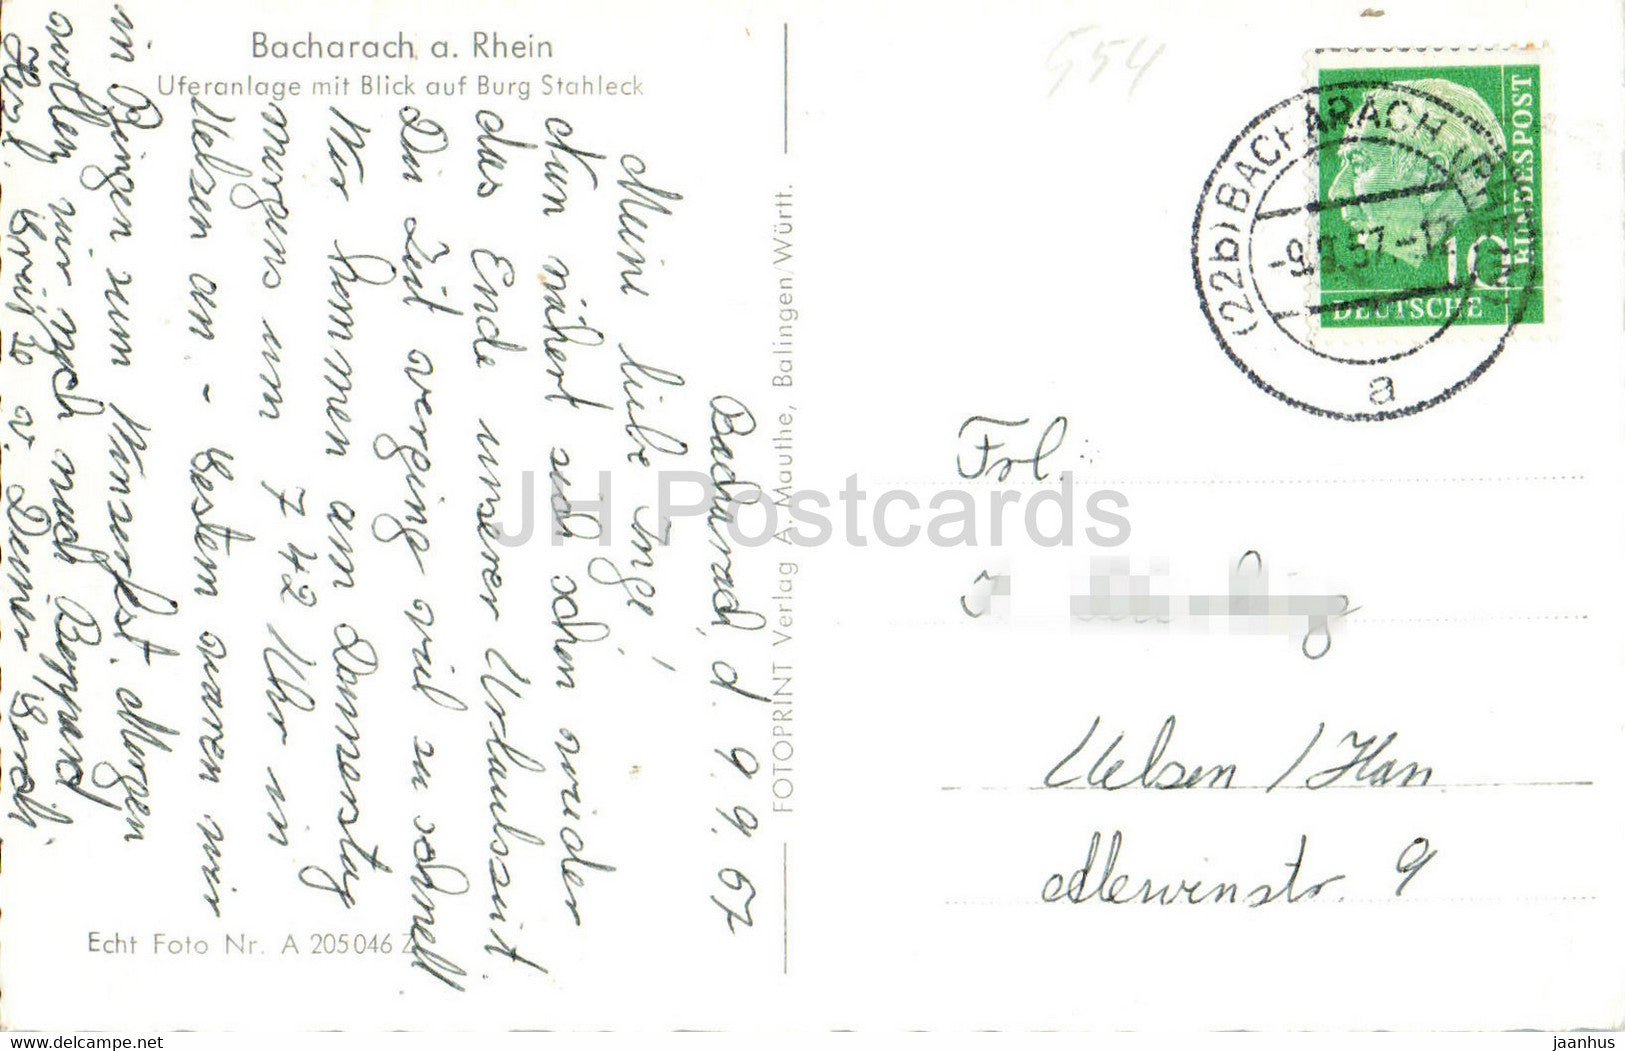 Bacharach a. Rhein
Uferanlage mit Blick auf Burg Stahleck
Bacharach, d. 9.9.57
Meine liebe Inge!
Nun nähert sich schon wieder
das Ende unserer Urlaubszeit
Die Zeit verging viel zu schnell
Wir kommen am Donnerstag
morgens um 7 42 Uhr in
Uelzen an - Gestern waren wir
in Bingen zum Winzerfest. Morgen
wollen wir noch nach Boppard
Herzl. Grüße v. Deiner
Echt Foto Nr. A 205046 Z
FOTOPRINT Verlag A. Mauthe, Balingen/Württ.
554
(22b) BACHARACH (RHEIN)
-9.9.57.-12
a
10
DEUTSCHE
BUNDESPOST
Frl.
Uelzen / Han
9
JH Postcards
delcampe.net
jaanhus